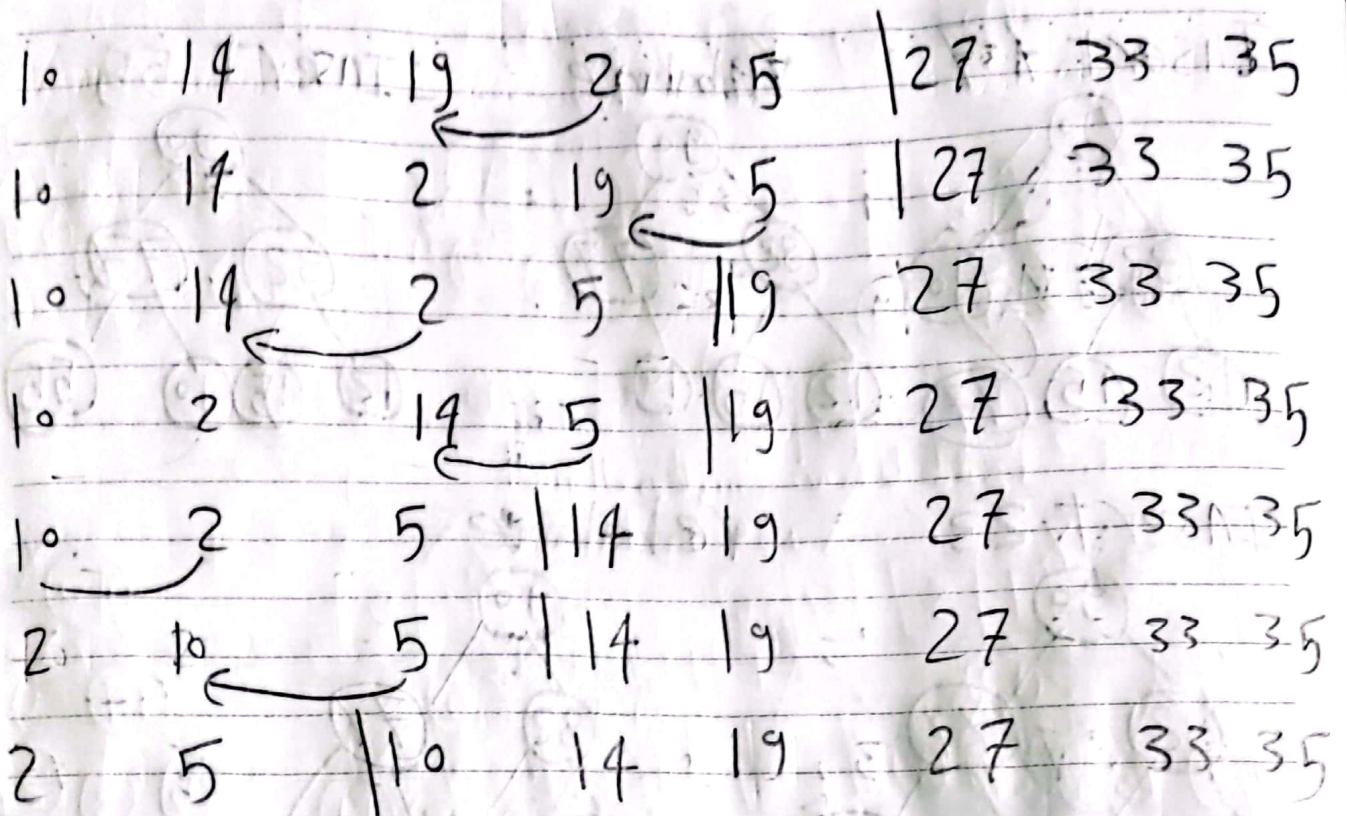 10 14 19 2 5 | 27 33 35
10 14 2 19 5 | 27 33 35
10 14 2 5 | 19 27 33 35
10 2 14 5 | 19 27 33 35
10 2 5 | 14 19 27 33 35
2 10 5 | 14 19 27 33 35
2 5 | 10 14 19 27 33 35